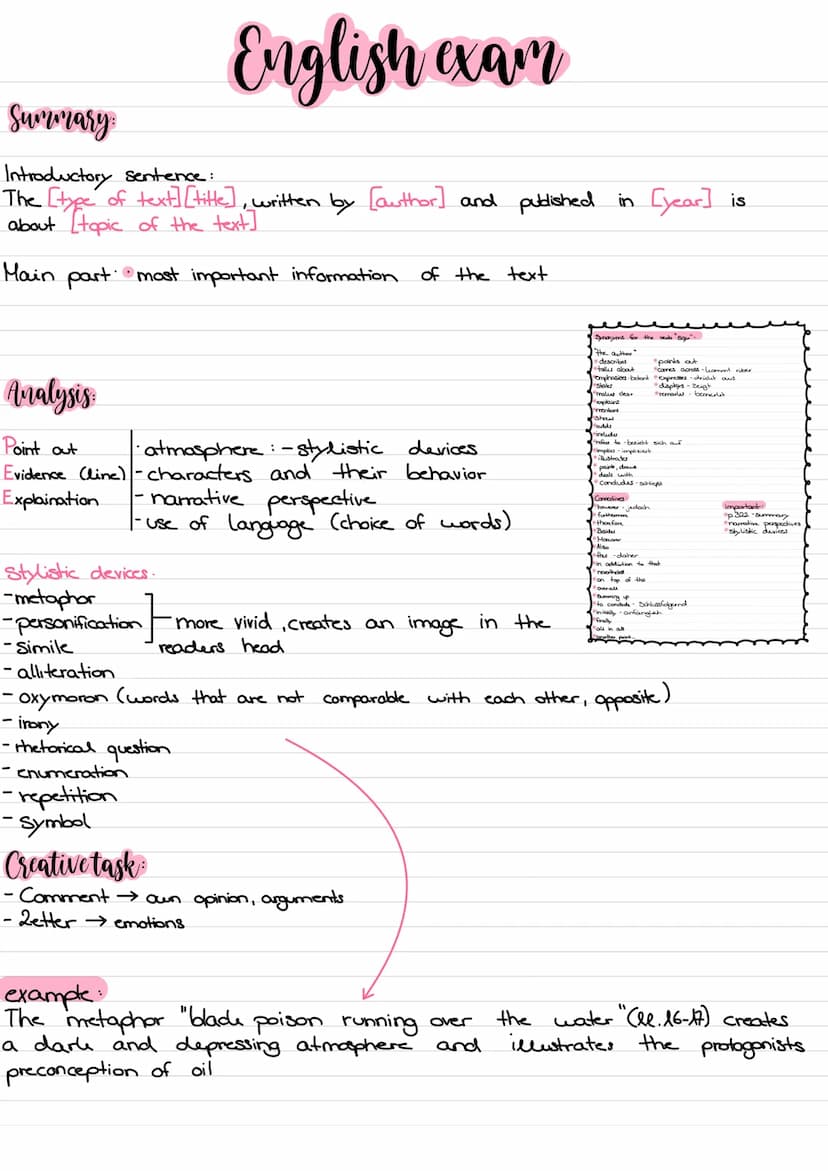 English exam
Summary:
Introductory sentence:
The [type of text][title], written by [author] and published in [year] is
about [topic of the text]
Main part: • most important information of the text
Analysis:
Point out
Evidence (line)
Explaination
• atmosphere: - stylistic devices
- characters and their behavior
- narrative perspective
- use of language (choice of words)
Stylistic devices:
- metaphor
- personification
- simile
more vivid, creates an image in the
readers head
- alliteration
- oxymoron (words that are not comparable with each other, opposite)
- irony
- rhetorical question
- enumeration
- repetition
- symbol
Synonyms for the verb "say":
"the author"
• describes
• talks about
• states
• makes clear
• explains
• mentions
• shows
• adds
• includes
• refers to - bezieht sich auf
• implies - impliziert
• illustrates
• deals with
• concludes - schließt
• points out
• comes across -
• expresses - drückt aus
• displays - zeigt
• remarks - bemerkt
Connectives
• however - jedoch
• furthermore
• therefore
• Besides
• Moreover
• Also
• thus - daher
• in addition to that
• on top of this
• overall
• summing up
• to conclude - Schlussfolgernd
• initially - anfänglich
• finally
• all in all
• another point
Important
• p.302 - summary
• narrative perspectives
• stylistic devices
Creative task:
- Comment → own opinion, arguments
- Letter → emotions
example:
The metaphor "black poison running over the water" (ll.16-17) creates
a dark and depressing atmosphere and illustrates the protagonists
preconception of oil